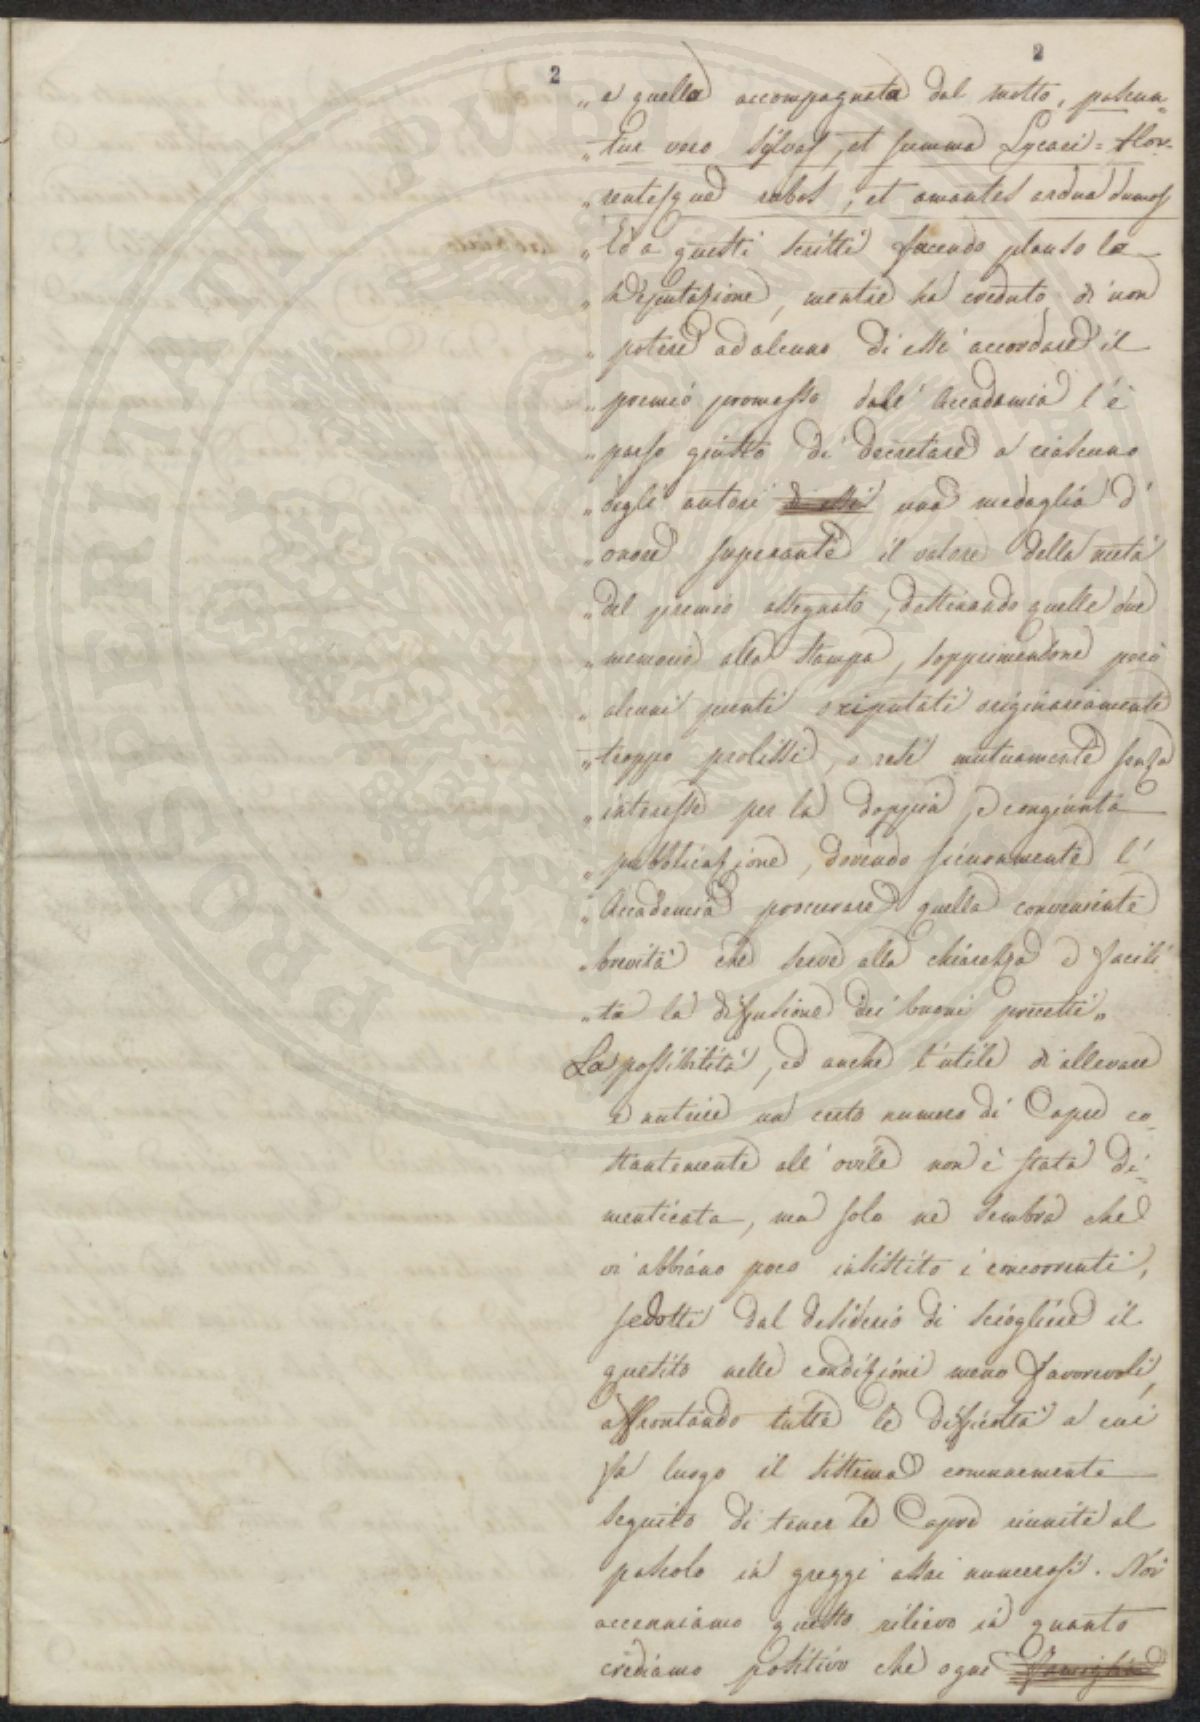 2 2
„ a quella accompagnata dal motto, pascun„
„ tur vero sylvas, et summa Lycaei = Hor-
„ rentesque rubos, et amantes ardua dumos
„ Ed a questi scritti facendo plauso la
„ Deputazione, mentre ha creduto di non
„ potere ad alcuno di essi accordare il
„ premio promesso dall' Accademia l'è
„ parso giusto di decretare a ciascuno
„ degli autori di essi una medaglia d'
„ onore superante il valore della metà
„ del premio assegnato, destinando quelle due
„ memorie alla stampa, sopprimendone però
„ alcuni punti o riputati originariamente
„ troppo prolissi, o resi mutuamente senza
„ interesse per la doppia, e congiunta
„ pubblicazione, dovendo sicuramente l'
„ Accademia procurare quella conveniente
„ brevità che serve alla chiarezza e facili
„ ta la difusione dei buoni precetti„
La possibilità, ed anche l'utile di allevare
e nutrire un certo numero di Capre co-
stantemente all' ovile non è stata di-
menticata, ma solo ne sembra che
vi abbiano poco insistito i concorrenti,
sedotti dal desiderio di sciogliere il
quesito nelle condizioni meno favorevoli,
affrontando tutte le difficoltà a cui
fa luogo il sistema comunemente
seguito di tener le Capre riunite al
pascolo in greggi assai numerosi. Noi
accenniamo questo rilievo in quanto
crediamo positivo che ogni famiglia